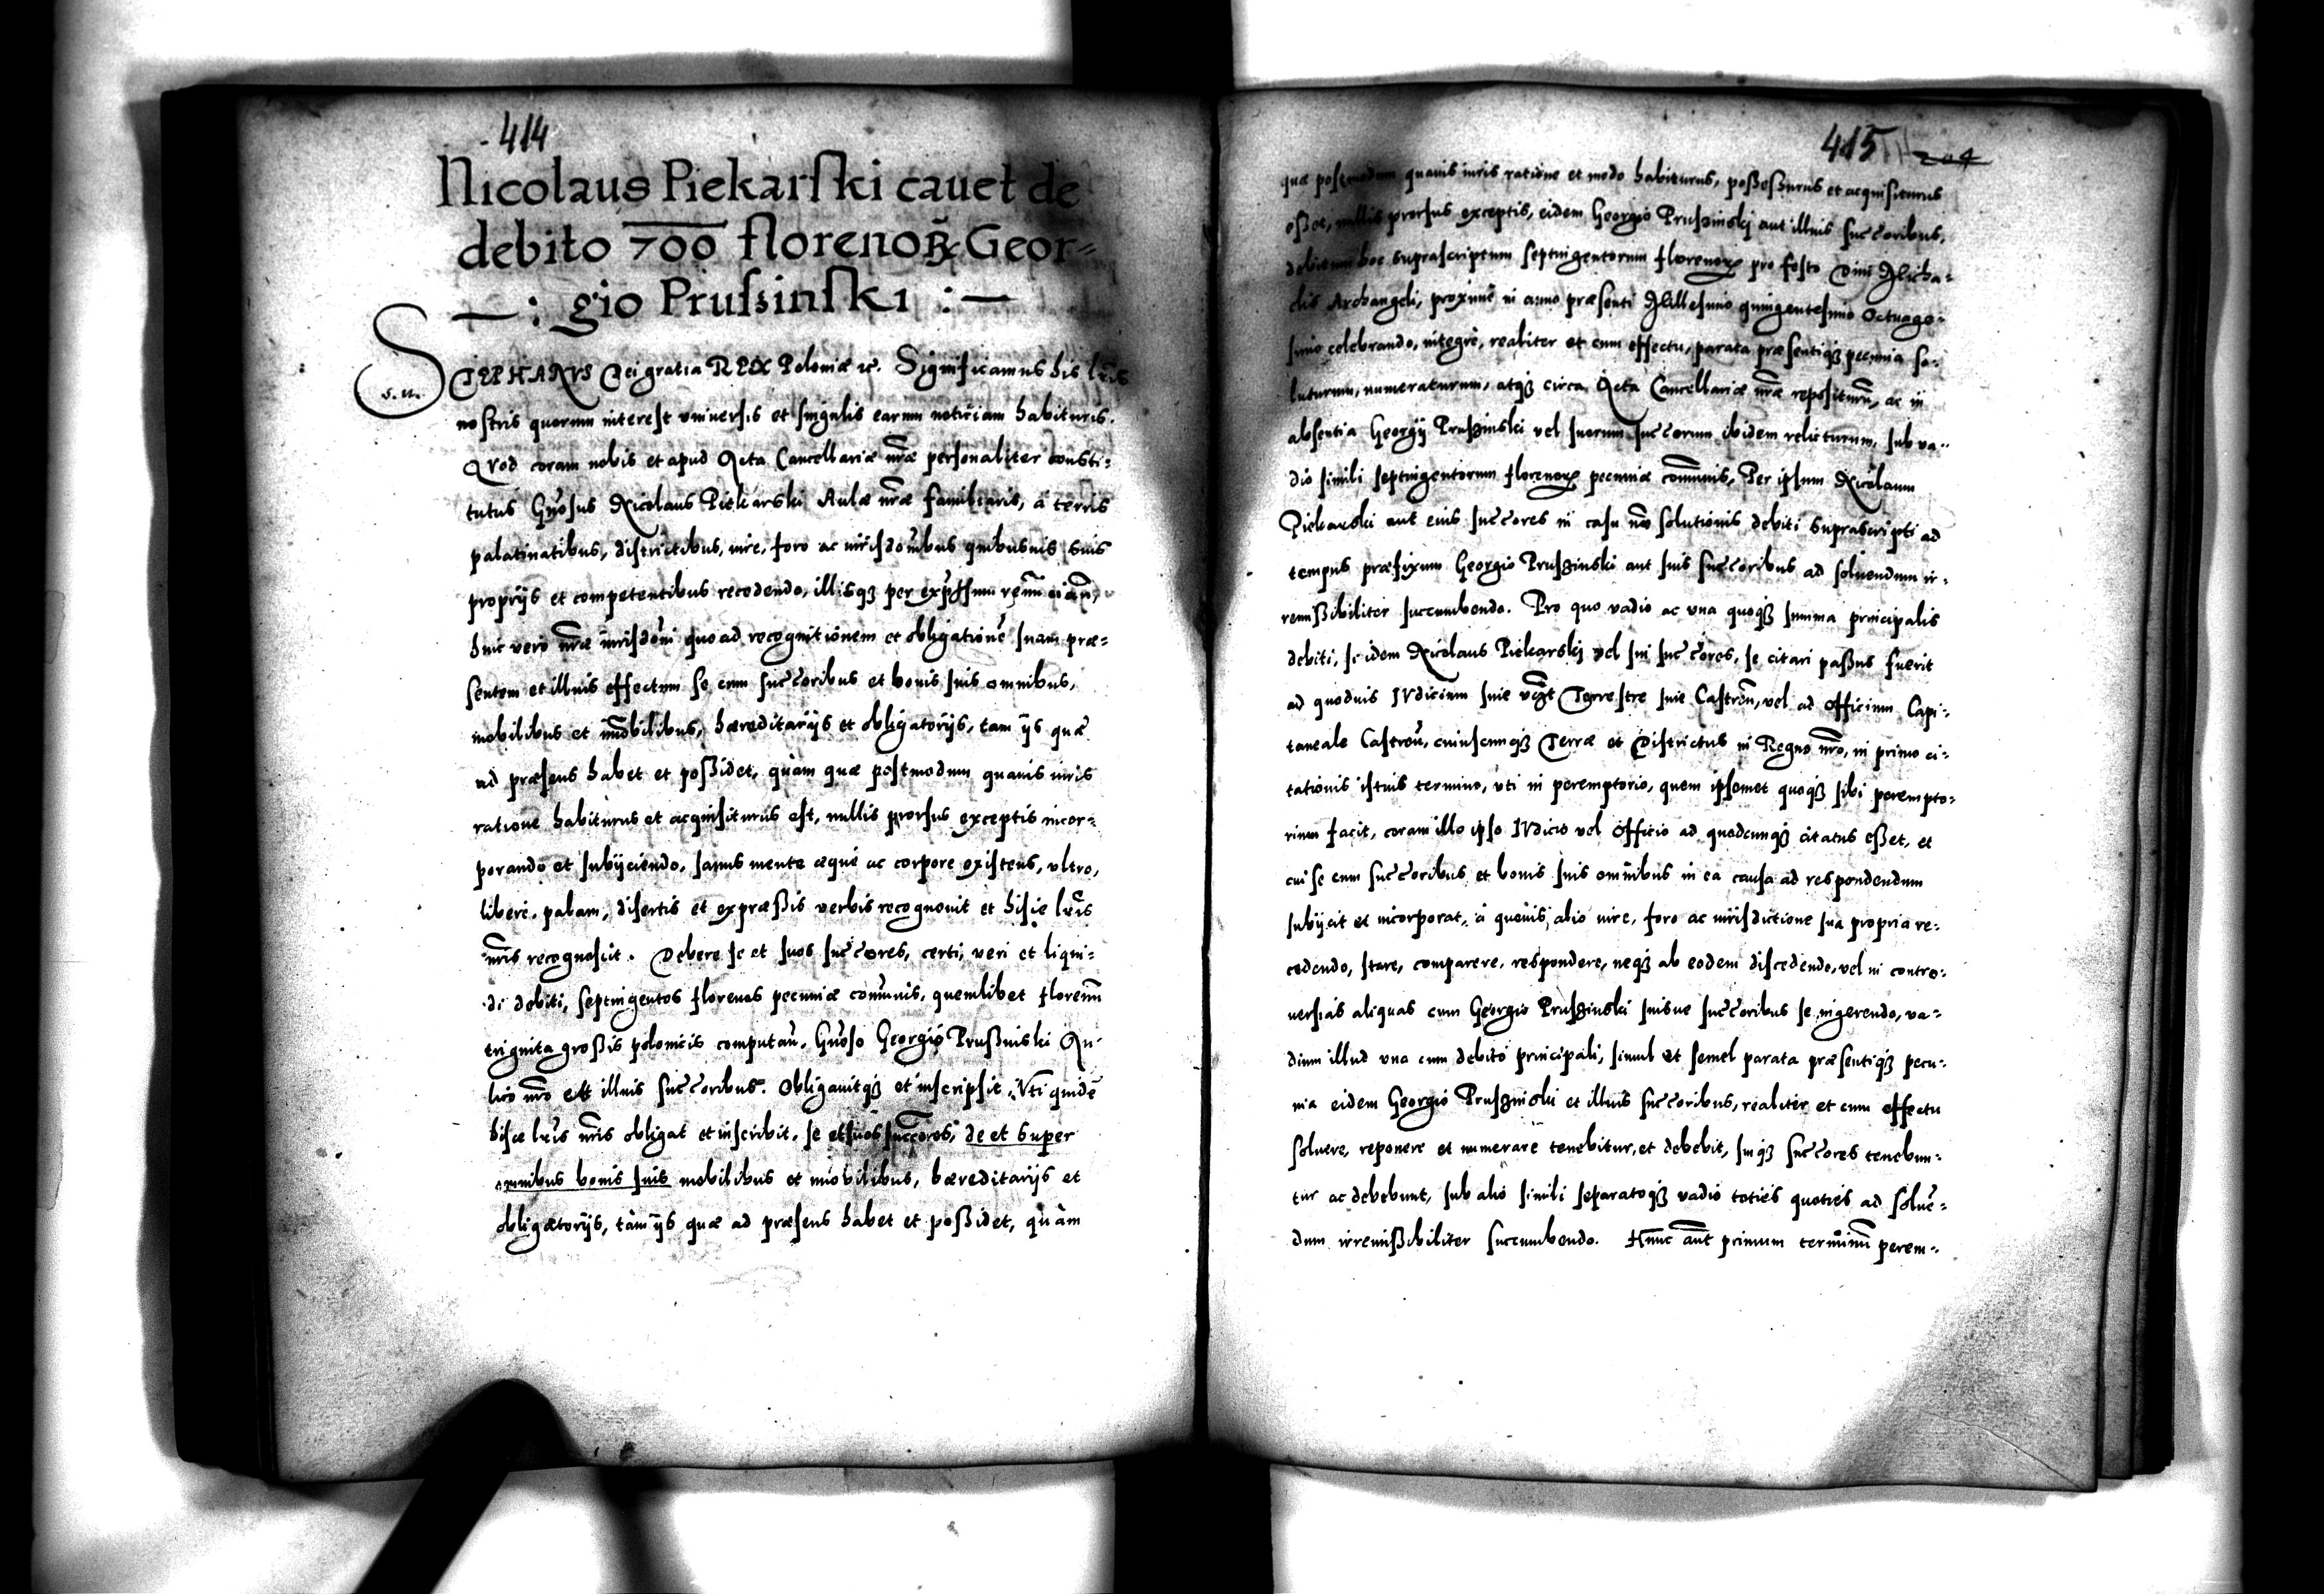 414
Nicolaus Piekarſki cauet de
debito 700 florenoꝝ Geor=
— : gio Prusſinſki : —
s.n.
STEPHANVS Dei gratia REX Poloniæ ꝛc. Significamus his lr̃is
nostris quorum interest vniuersis et singulis earum noticiam habituris.
Quod coram nobis et apud Acta Cancellariæ nr̃æ personaliter consti=
tutus Gn̄osus Nicolaus Piekarski Aulæ nr̃æ familiaris, à terris
palatinatibus, districtibus, iure, foro ac iurisdōnibus quibusuis suis
proprijs et competentibus recedendo, illisqꝫ per
huic verò nr̃æ iurisdōni quoad recognitionem et obligationē suam præ=
sentem et illius effectum se cum succ̄oribus et bonis suis omnibus,
mobilibus et im̄obilibus, hæreditarijs et obligatorijs, tam ijs quæ
ad præsens habet et poßidet, quàm quæ postmodum quauis iuris
ratione habiturus et acquisiturus est, nullis prorsus exceptis incor=
porando et subijciendo, sanus mente æquè ac corpore existens, vltro,
liberè, palam, disertis et expræßis verbis recognouit et hisce lr̃is
nr̃is recognoscit. Debere se et suos succ̄ores, certi, veri et liqui=
di debiti, septingentos florenos pecuniæ com̄unis, quemlibet florenū
triginta großis polonicis computañ. Gn̄oso Georgio Prußinski Au=
lico nr̃o et illius succ̄oribus. Obligauitqꝫ et inscripsit. Vti quidē
hisce lr̃is nr̃is obligat et inscribit, se et suos succ̄ores, de et super
omnibus bonis suis mobilibus et im̄obilibus, hæreditarijs et
obligatorijs, tàm ijs quæ ad præsens habet et poßidet, quàm
415 204
quæ postmodum quauis iuris ratione et modo habiturus, poßeßurus et acquisiturus
eßet, nullis prorsus exceptis, eidem Georgio Pruszinskj aut illius succ̄oribus,
debitum hoc suprascriptum septingentorum florenoꝝ pro festo Diui Micha=
elis Archangeli, proximè in anno præsenti Millesimo quingentesimo Octuage=
simo celebrando, integrè, realiter et cum effectu, parata præsentiqꝫ pecunia so=
luturum, numeraturum, atqꝫ circa Acta Cancellariæ nr̃æ repositurū, ac in
absentia Georgij Pruszinski vel suorum succ̄orum ibidem relicturum, sub va=
dio simili septingentorum florenoꝝ pecuniæ com̄unis, Per ipsum Nicolaum
Piekarski aut eius succ̄ores in casu nō solutionis debiti suprascripti ad
tempus præfixum Georgio Prusżinski aut suis succ̄oribus ad soluendum ir=
remißibiliter succumbendo. Pro quo vadio ac vna quoqꝫ summa principalis
debiti, si idem Nicolaus Piekarskj vel sui succ̄ores, se citari paßus fuerit
ad quoduis IVdicium siue Terrestre siue Castreñ, vel ad Officium Capi=
taneale Castreñ, cuiuscunqꝫ Terræ et Districtus in Regno nr̃o, in primo ci=
tationis istius termino, vti in peremptorio, quem ipsemet quoqꝫ sibi perempto=
rium facit, coram illo ipso IVdicio vel Officio ad quodcunqꝫ citatus eßet, et
cui se cum succ̄oribus et bonis suis omnibus in ea causa ad respondendum
subijcit et incorporat, à quouis alio iure, foro ac iurisdictione sua propria re=
cedendo, stare, comparere, respondere, neqꝫ ab eodem discedendo, vel in contro=
uersias aliquas cum Georgio Prusżinski suisue succ̄oribus se ingerendo, va=
dium illud vna cum debito principali, simul et semel parata præsentiqꝫ pecu=
nia eidem Georgio Prusżinski et illius succ̄oribus, realiter et cum effectu
soluere, reponere et numerare tenebitur, et debebit, suiqꝫ succ̄ores tenebun=
tur ac debebunt, sub alio simili separatoqꝫ vadio toties quoties ad soluē=
dum irremißibiliter succumbendo. Hunc aūt primum terminū perem=